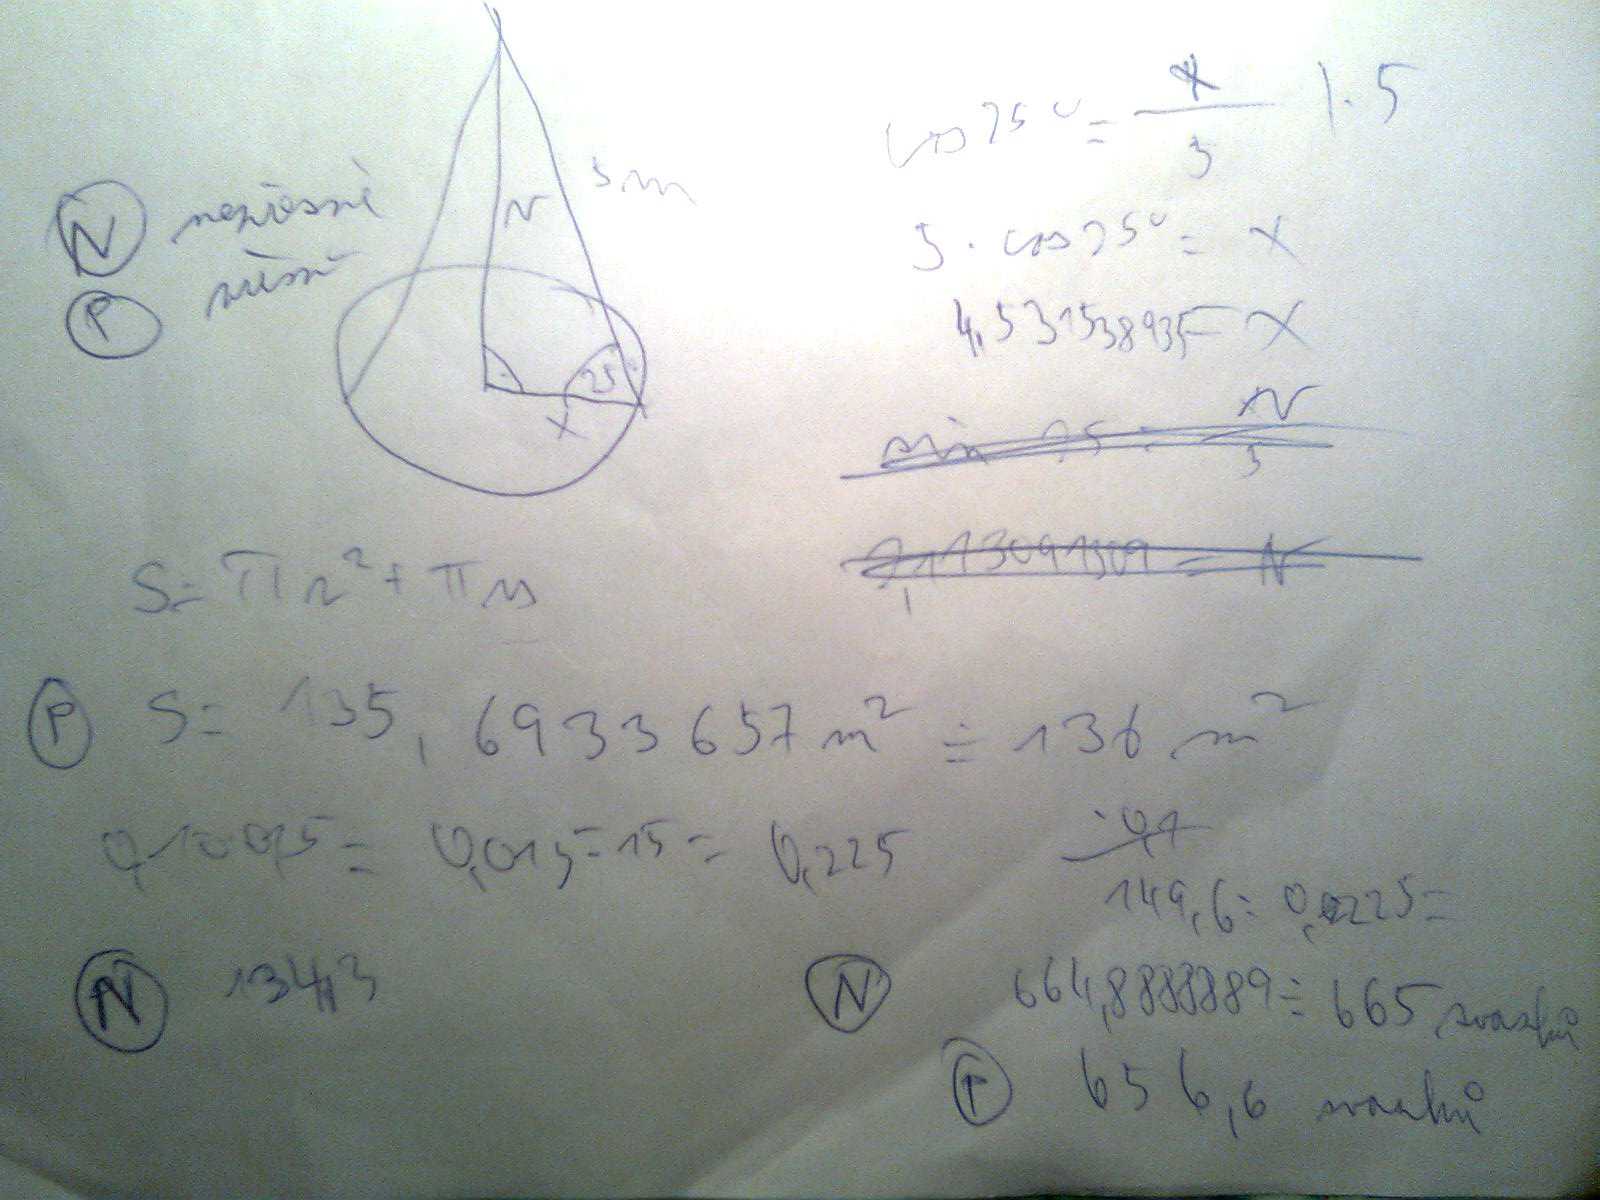 5 m
v
25
x
N nepřesné
P přesné
cos 25° = x / 5 | · 5
5 · cos 25° = x
4,531538935 = x
sin 25 = v / 5
2,113091309 = v
S = π r² + π r s
P S = 135,6933657 m² ≐ 136 m²
0,1 · 0,15 = 0,015 · 15 = 0,225
· 0,1
149,6 : 0,225 =
N 134,3
N 664,8888889 ≐ 665 svazků
P 656,6 svazků